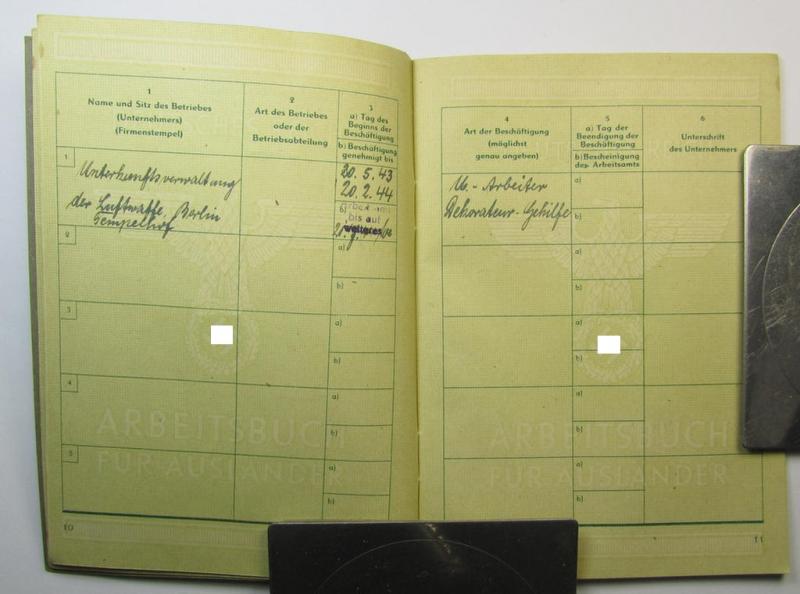 1
Name und Sitz des Betriebes
(Unternehmers)
(Firmenstempel)
2
Art des Betriebes
oder der
Betriebsabteilung
3
a) Tag des
Beginns der
Beschäftigung
b) Beschäftigung
genehmigt bis
1
Unterkunftsverwaltung
der Luftwaffe, Berlin
Tempelhof
20. 5. 43
20. 2. 44
b)
bis auf
weiteres
2
a)
b)
3
a)
b)
4
a)
b)
5
a)
b)
ARBEITSBUCH
FÜR AUSLÄNDER
10
4
Art der Beschäftigung
(möglichst
genau angeben)
5
a) Tag der
Beendigung der
Beschäftigung
b) Bescheinigung
des Arbeitsamts
6
Unterschrift
des Unternehmers
Arbeiter
Dekorateur-Gehilfe
a)
b)
a)
b)
a)
b)
a)
b)
a)
b)
ARBEITSBUCH
FÜR AUSLÄNDER
11